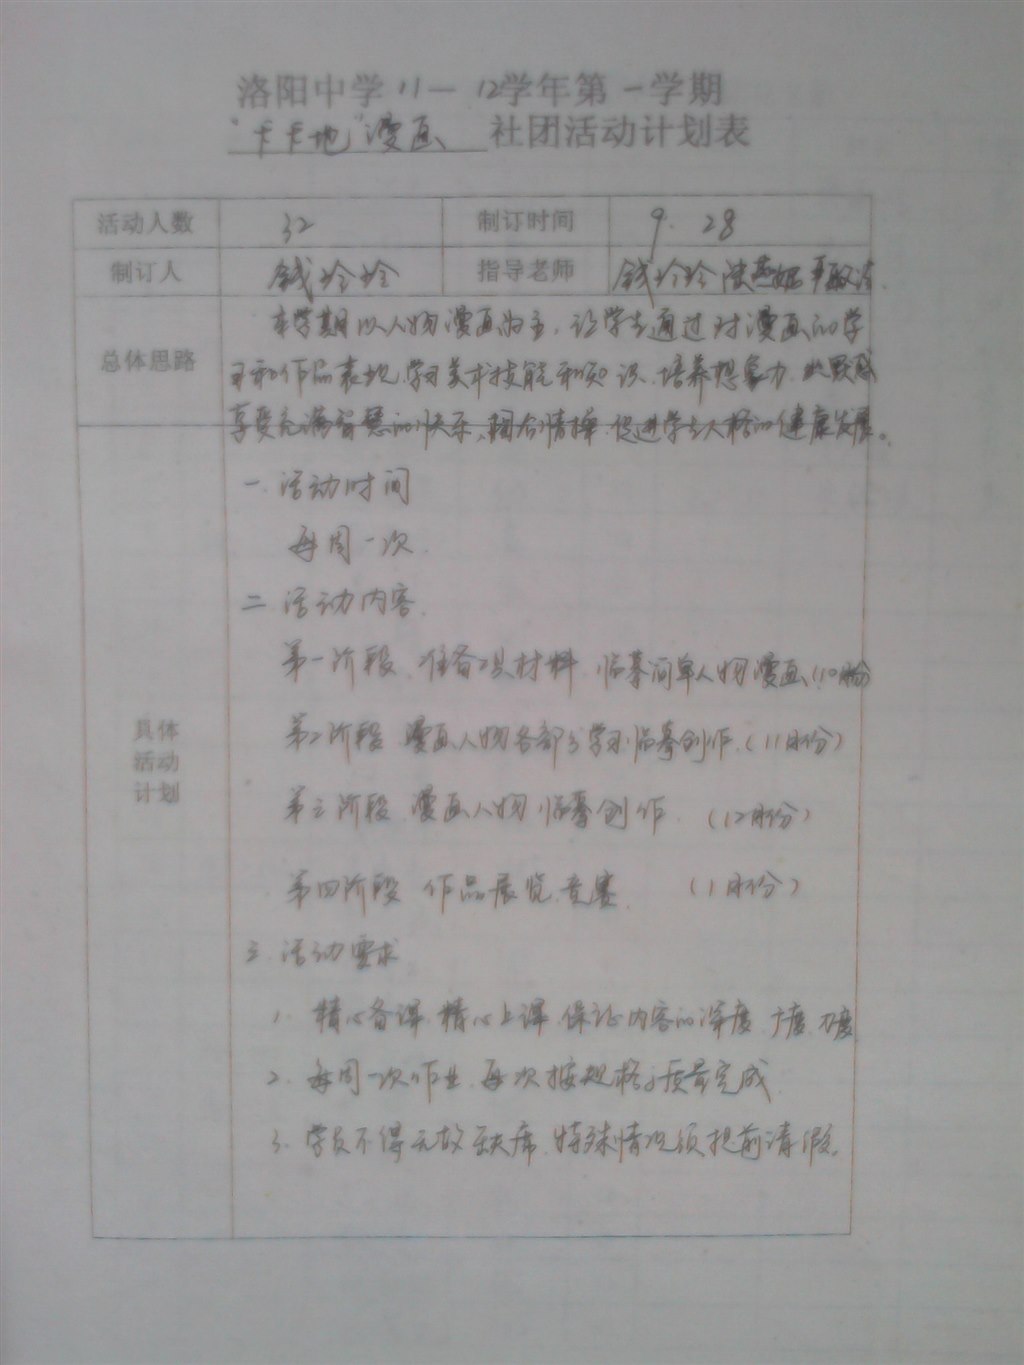 洛阳中学11—12学年第一学期
“卡卡地”漫画 社团活动计划表
活动人数 32 制订时间 9.28
制订人 钱玲玲 指导老师 钱玲玲
总体思路
本学期以人物漫画为主,让学生通过对漫画的学
习和作品表现,学习美术技能和知识、培养想象力
享受充满智慧的快乐、陶冶情操、促进学生人格的健康发展。
具体
活动
计划
一、活动时间
每周一次.
二、活动内容.
第一阶段、准备工具材料、临摹简单人物漫画(10月份)
第二阶段 漫画人物各部分学习临摹创作.(11月份)
第三阶段 漫画人物临摹创作.(12月份)
第四阶段 作品展览.竞赛.(1月份)
三、活动要求
1、精心备课.精心上课.保证内容的深度 广度 力度
2、每周一次作业.每次按规格 质量完成
3、学员不得无故缺席.特殊情况须提前请假.